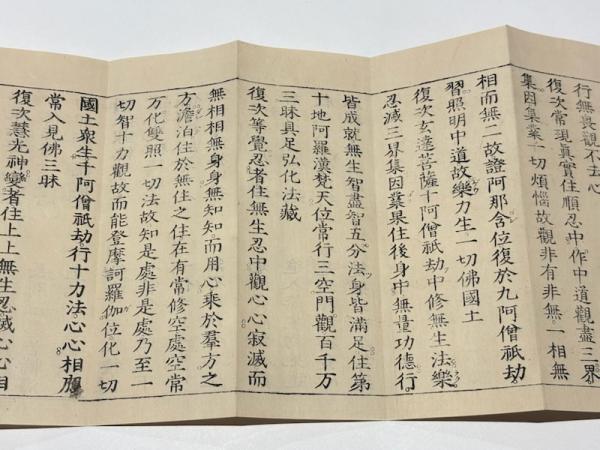 行無畏觀不去心
復次常現真實住順忍中作中道觀盡三界
集因集業一切煩惱故觀非有非無一相無
相而無二故證阿那含位復於九阿僧祇劫
習照明中道故樂力生一切佛國土
復次玄達菩薩十阿僧祇劫中修無生法樂
忍滅三界集因業果住後身中無量功德行
皆成就無生智盡智五分法身皆滿足住第
十地阿羅漢梵天位常行三空門觀百千万
三昧具足弘化法藏
復次等覺忍者住無生忍中觀心心寂滅而
無相相無身身無知知而用心乘於羣方之
方澹泊住於無住之住在有常修空處空常
万化雙照一切法故知是處非是處乃至一
切智十力觀故而能登摩訶羅伽位化一切
國土衆生千阿僧祇劫行十力法心心相應
常入見佛三昧
復次慧光神變者住上上無生忍滅心心相